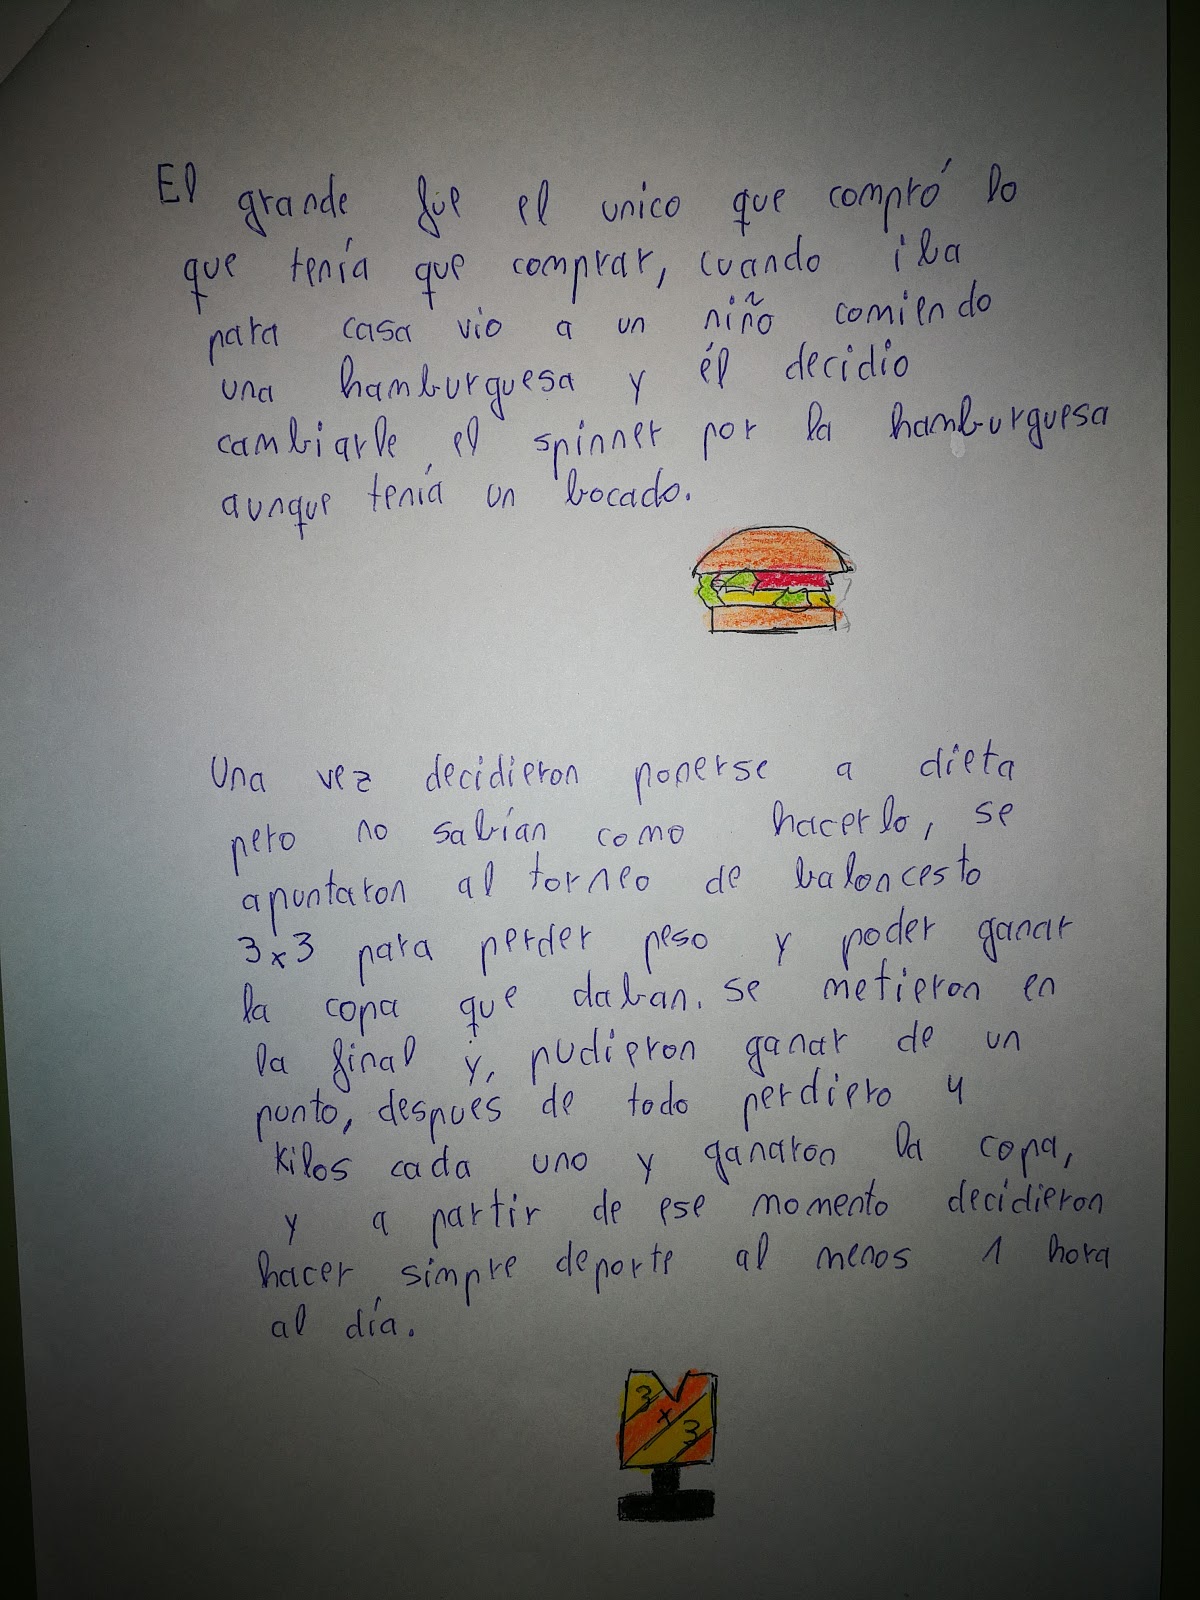 El grande fue el unico que compró lo
que tenía que comprar, cuando iba
para casa vio a un niño comiendo
una hamburguesa y él decidio
cambiarle el spinner por la hamburguesa
aunque tenía un bocado.
Una vez decidieron ponerse a dieta
pero no sabían como hacerlo, se
apuntaron al torneo de baloncesto
3x3 para perder peso y poder ganar
la copa que daban. se metieron en
la final y, pudieron ganar de un
punto, despues de todo perdiero 4
kilos cada uno y ganaron la copa,
y a partir de ese momento decidieron
hacer simpre deporte al menos 1 hora
al día.
3x3